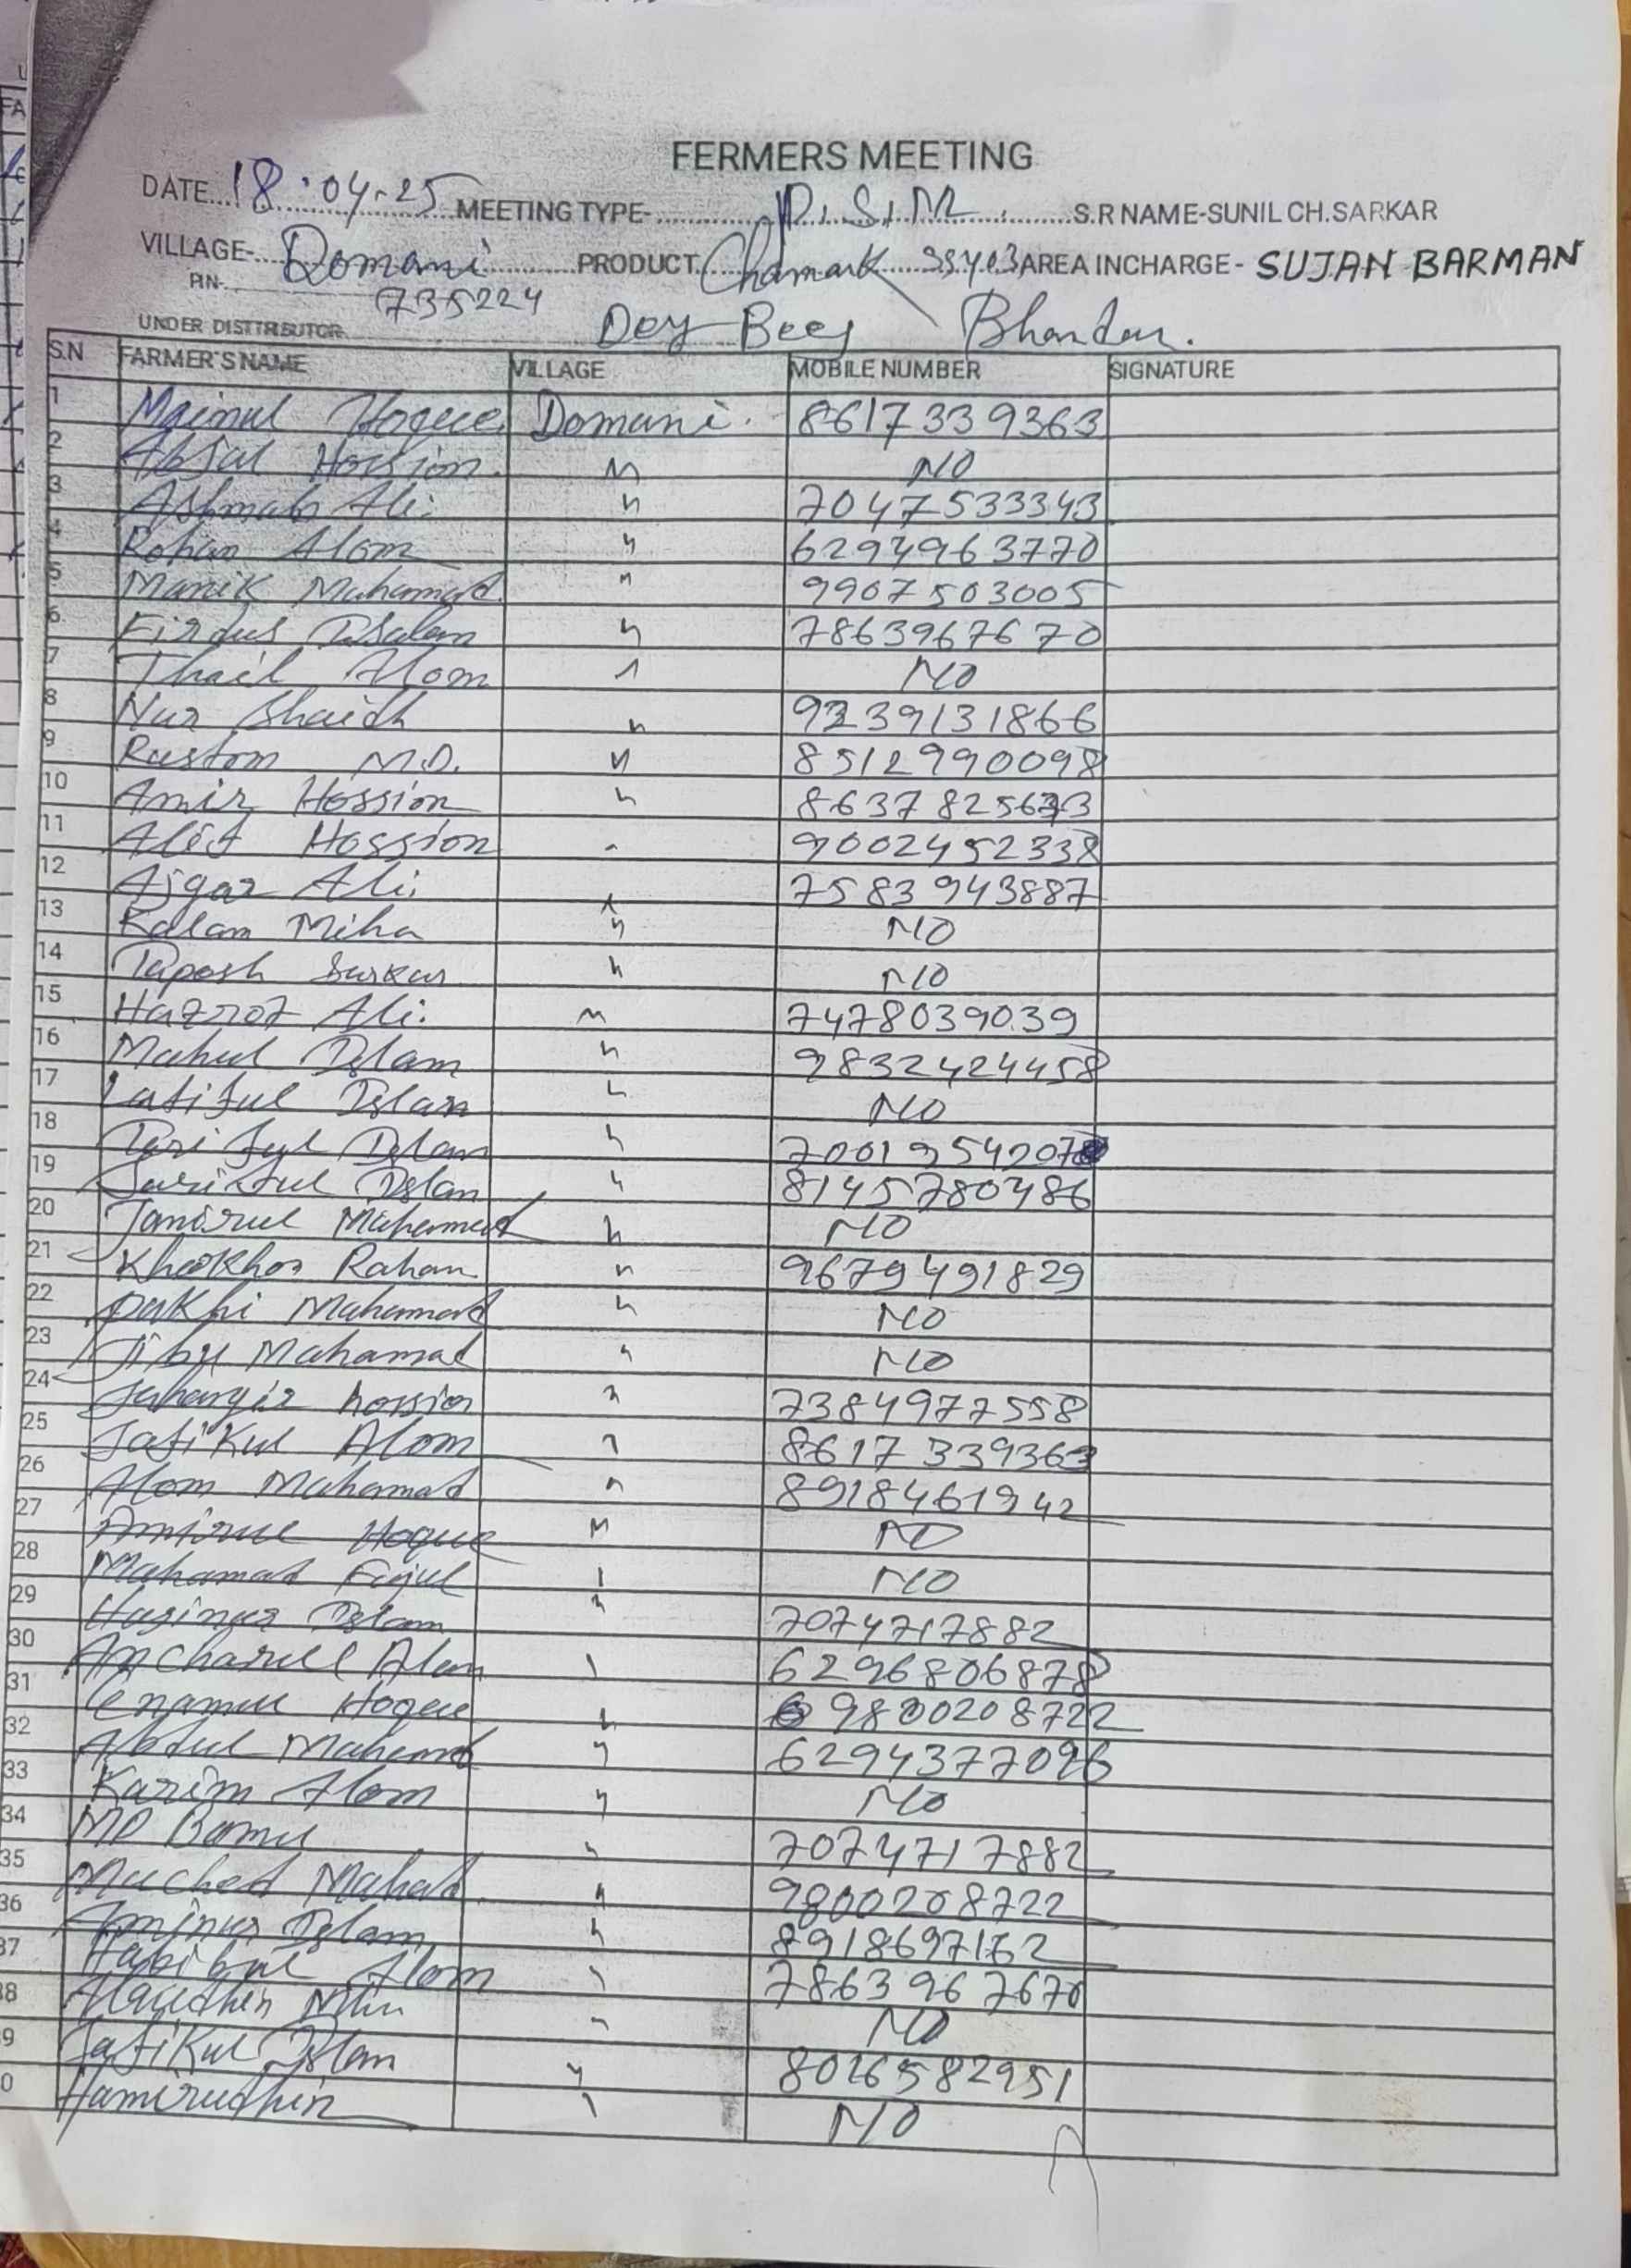 FERMERS MEETING
DATE 18-04-25 MEETING TYPE- P.S.M S.R NAME-SUNIL CH.SARKAR
VILLAGE- Domani PRODUCT Chamark 33403 AREA INCHARGE- SUJAN BARMAN
PIN- 735224
UNDER DISTTRIBUTOR Dey Beej Bhandar.
S.N FARMER'S NAME VILLAGE MOBILE NUMBER SIGNATURE
1 Mainul Hoque Domani. 8617339363
2 Absal Hossion. " NO
3 Ashmab Ali. " 7047533343
4 Rohan Alom " 6294963770
5 Manik Muhamad. " 9907503005
6 Firdus Islam " 7863967670
7 Alom " NO
8 Nur Shaidh " 9239131866
9 Rustom M.D. " 85129990098
10 Amir Hossion " 8637825673
11 Alif Hossion " 9002452338
12 Ajgar Ali. " 7583943887
13 Kalam Miha " NO
14 Taposh Sarkar " NO
15 Hazrot Ali. " 7478039039
16 Mahul Islam " 9832424458
17 Latiful Islam " NO
18 Tariful Islam "
19 Sariful Islam " 8145780486
20 Jamirul Mahammad " NO
21 Khokhon Rahan " 9679491829
22 Pakhi Mahammad " NO
23 Jibu Mahamad " NO
24 Jahangir hossion " 7384977558
25 Safikul Alom " 8617339363
26 Alom Mahamad " 8918461942
27 Amirul Hoque " NO
28 Mahamad Fijul " NO
29 Hasinur Islam " 7074717882
30 Ancharull Alam " 6296806878
31 Enamul Hoque " 9800208722
32 Abdul Mahamad " 6294377096
33 Karim Alom " NO
34 MD Bamul " 7074717882
35 Muched Mahad. " 9800208722
36 Aminur Islam " 8918697162
37 Habibul Alom " 7863967670
38 " NO
39 Safikul Islam " 8016582951
40 Hamirudhin " NO